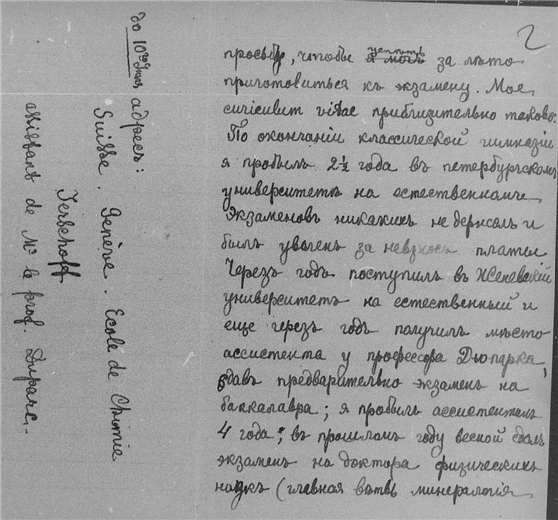 2
просьбу, чтобы успеть за лѣто
приготовиться къ экзамену. Мое
curiculum vitae приблизительно таково:
По окончаніи классической гимназіи
я пробылъ 2½ года въ петербургскомъ
университетѣ на естественномъ.
Экзаменовъ никакихъ не держалъ и
былъ уволенъ за невзносъ платы.
Черезъ годъ поступилъ въ Женевскій
университетъ на естественный и
еще черезъ годъ получилъ мѣсто
ассистента у профессора Дюпарка,
сдавъ предварительно экзаменъ на
баккалавра; я пробылъ ассистентомъ
4 года; въ прошломъ году весной сдалъ
экзаменъ на доктора физическихъ
наукъ (главная вѣтвь минералогія
до 10го адресъ:
Suisse. Genève. Ecole de Chimie
Jerschoff
assistant de Mr le prof. Duparc.